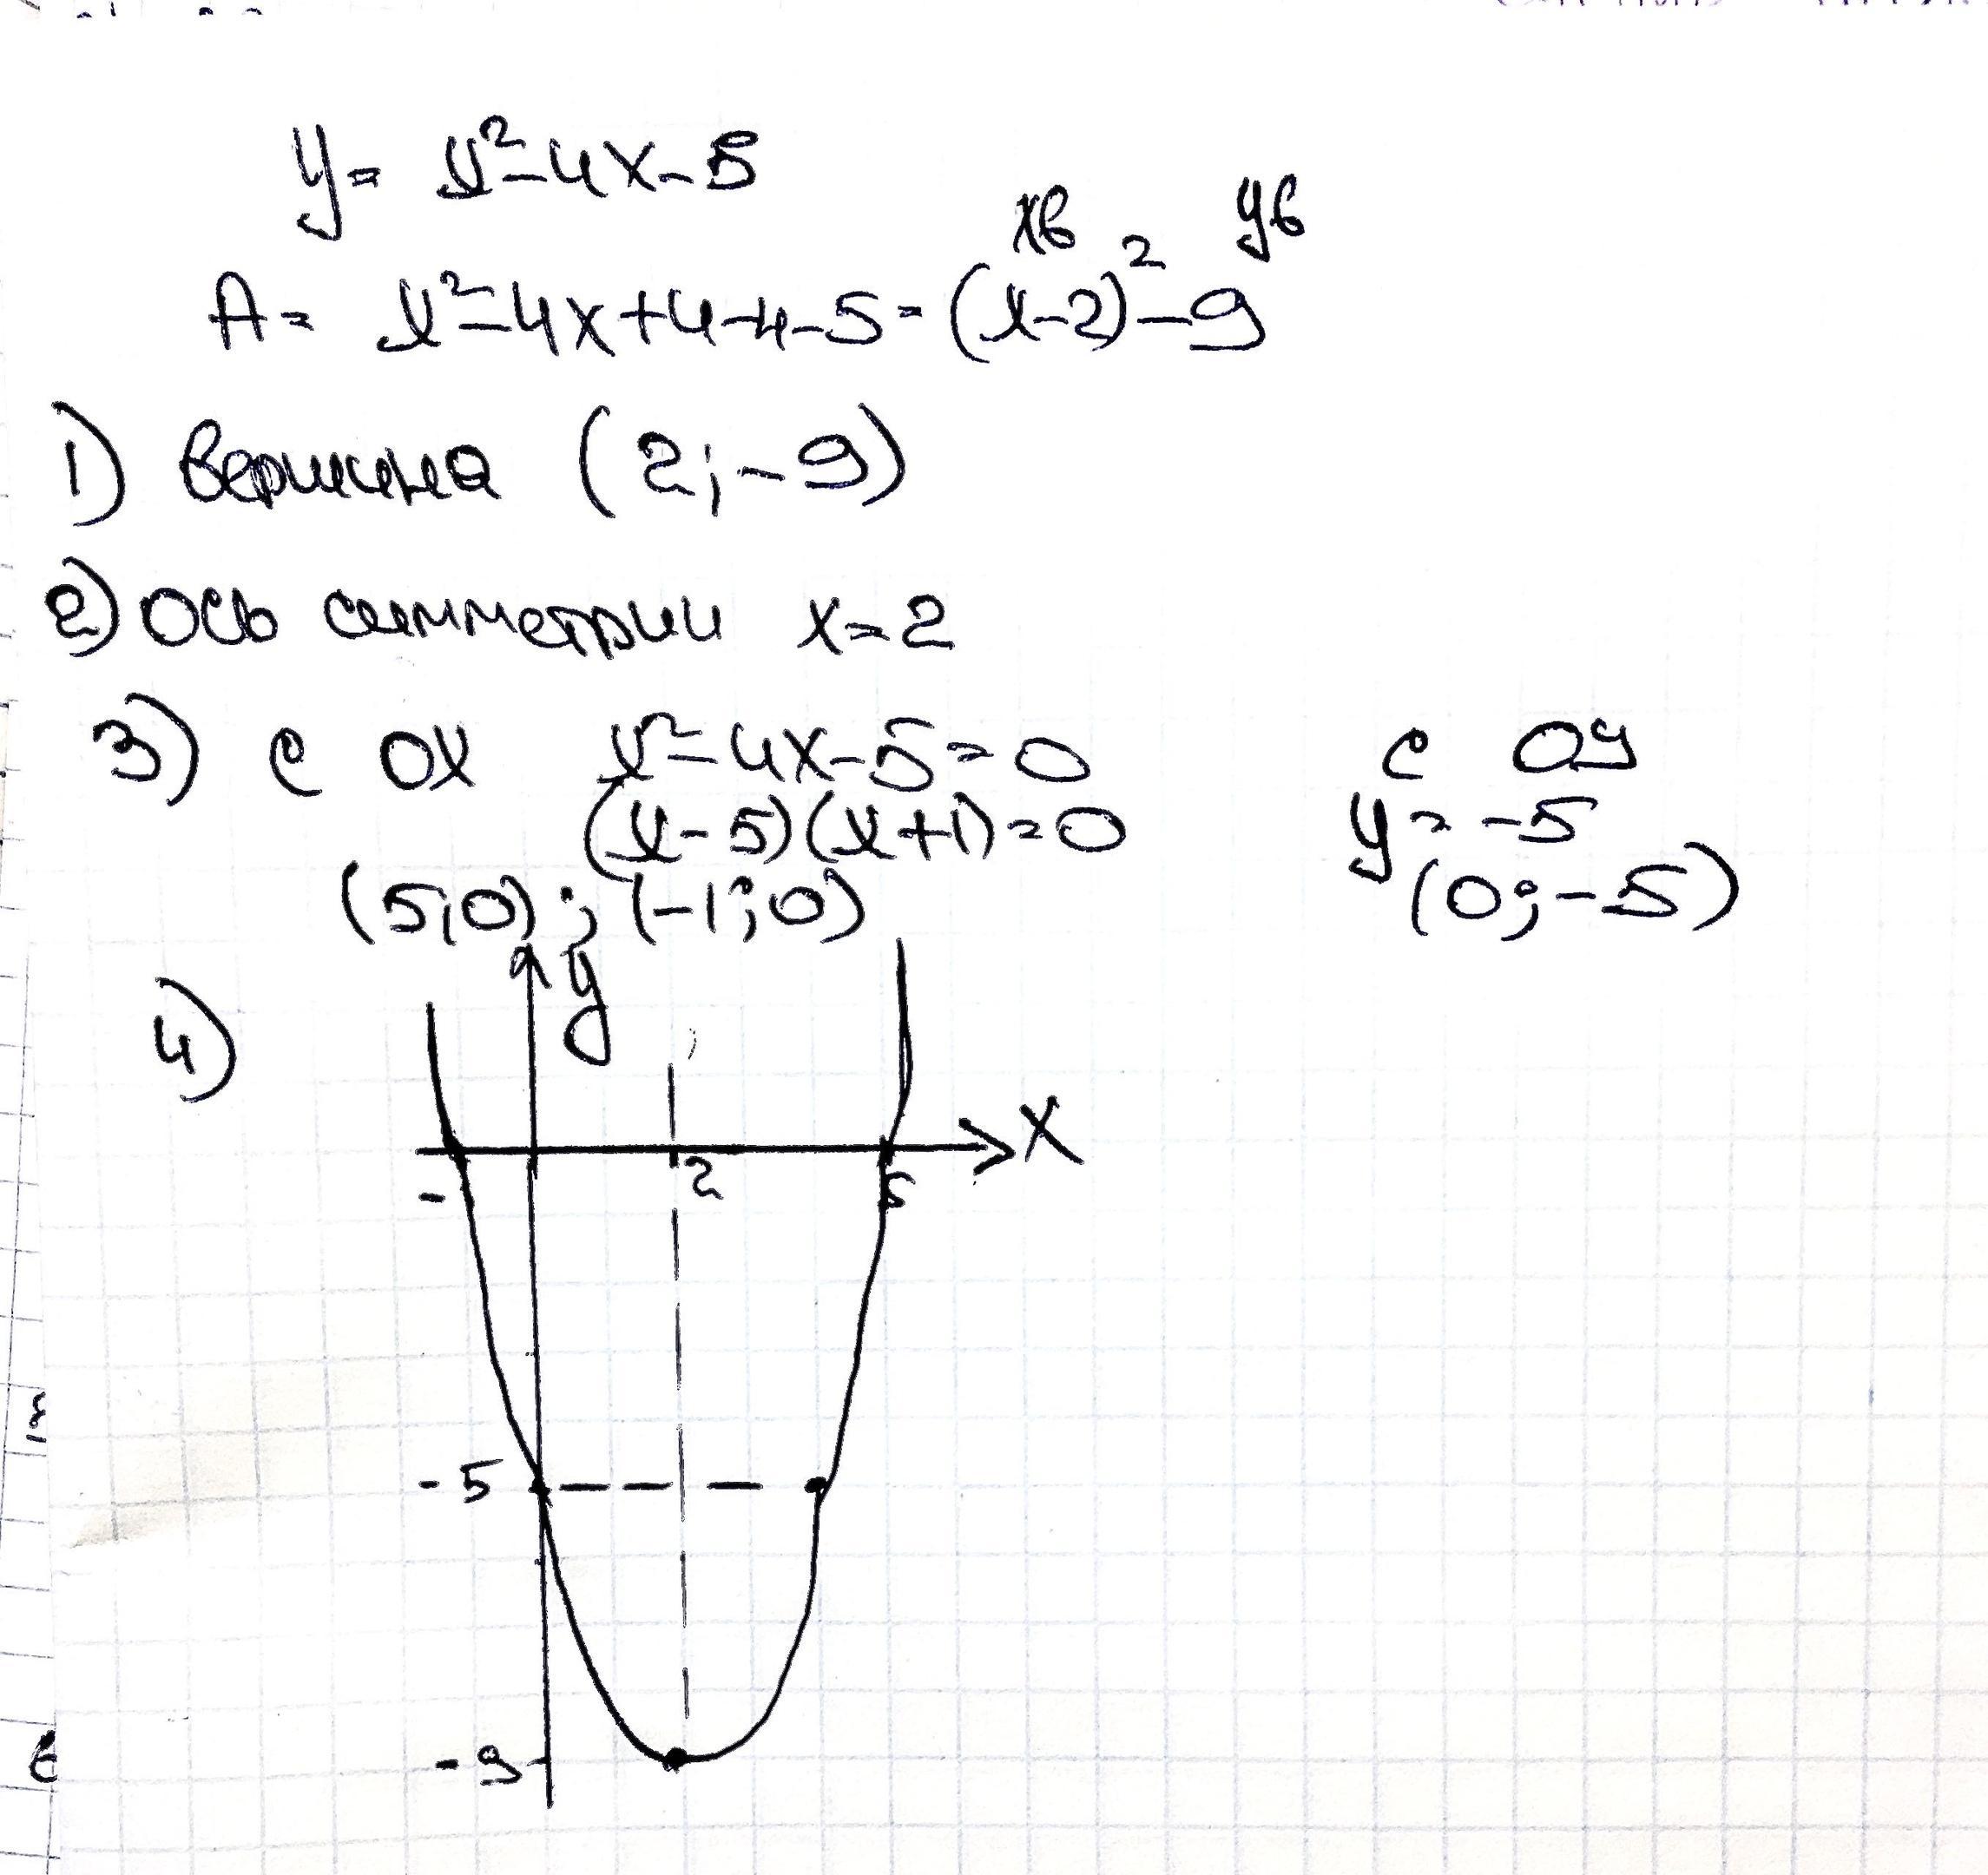 y = x² - 4x - 5
xв yв
A = x² - 4x + 4 - 4 - 5 = (x - 2)² - 9
1) вершина (2; -9)
2) ось симметрии x = 2
3) с OX x² - 4x - 5 = 0 с OY
(x - 5)(x + 1) = 0 y = -5
(5;0); (-1;0) (0; -5)
4) y
X
- 2 5
-5
-9